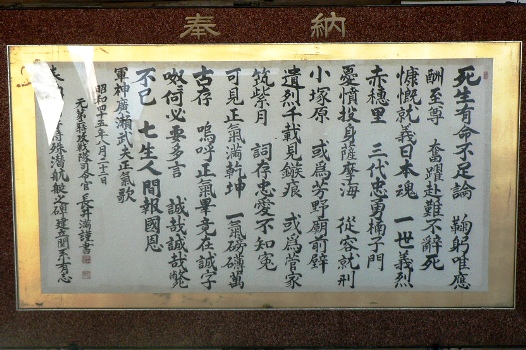 奉納
死生有命不足論 鞠躬唯應
酬至尊 奮躍赴難不辭死
慷慨就義日本魂 一世義烈
赤穂里 三代忠勇楠子門
憂憤投身薩摩海 從容就刑
小塚原 或為芳野廟前壁
遺烈千載見鏃痕 或為菅家
筑紫月 詞存忠愛不知冤
可見正氣満乾坤 一氣磅礴萬
古存 嗚呼正氣畢竟在誠字
呶何必要多言 誠哉誠哉斃
不已 七生人間報國恩
軍神廣瀬武夫正氣歌
昭和四十五年八月二十二日
元第特攻戦隊司令官 長井満謹書
特殊潜航艇之碑建立関係有志